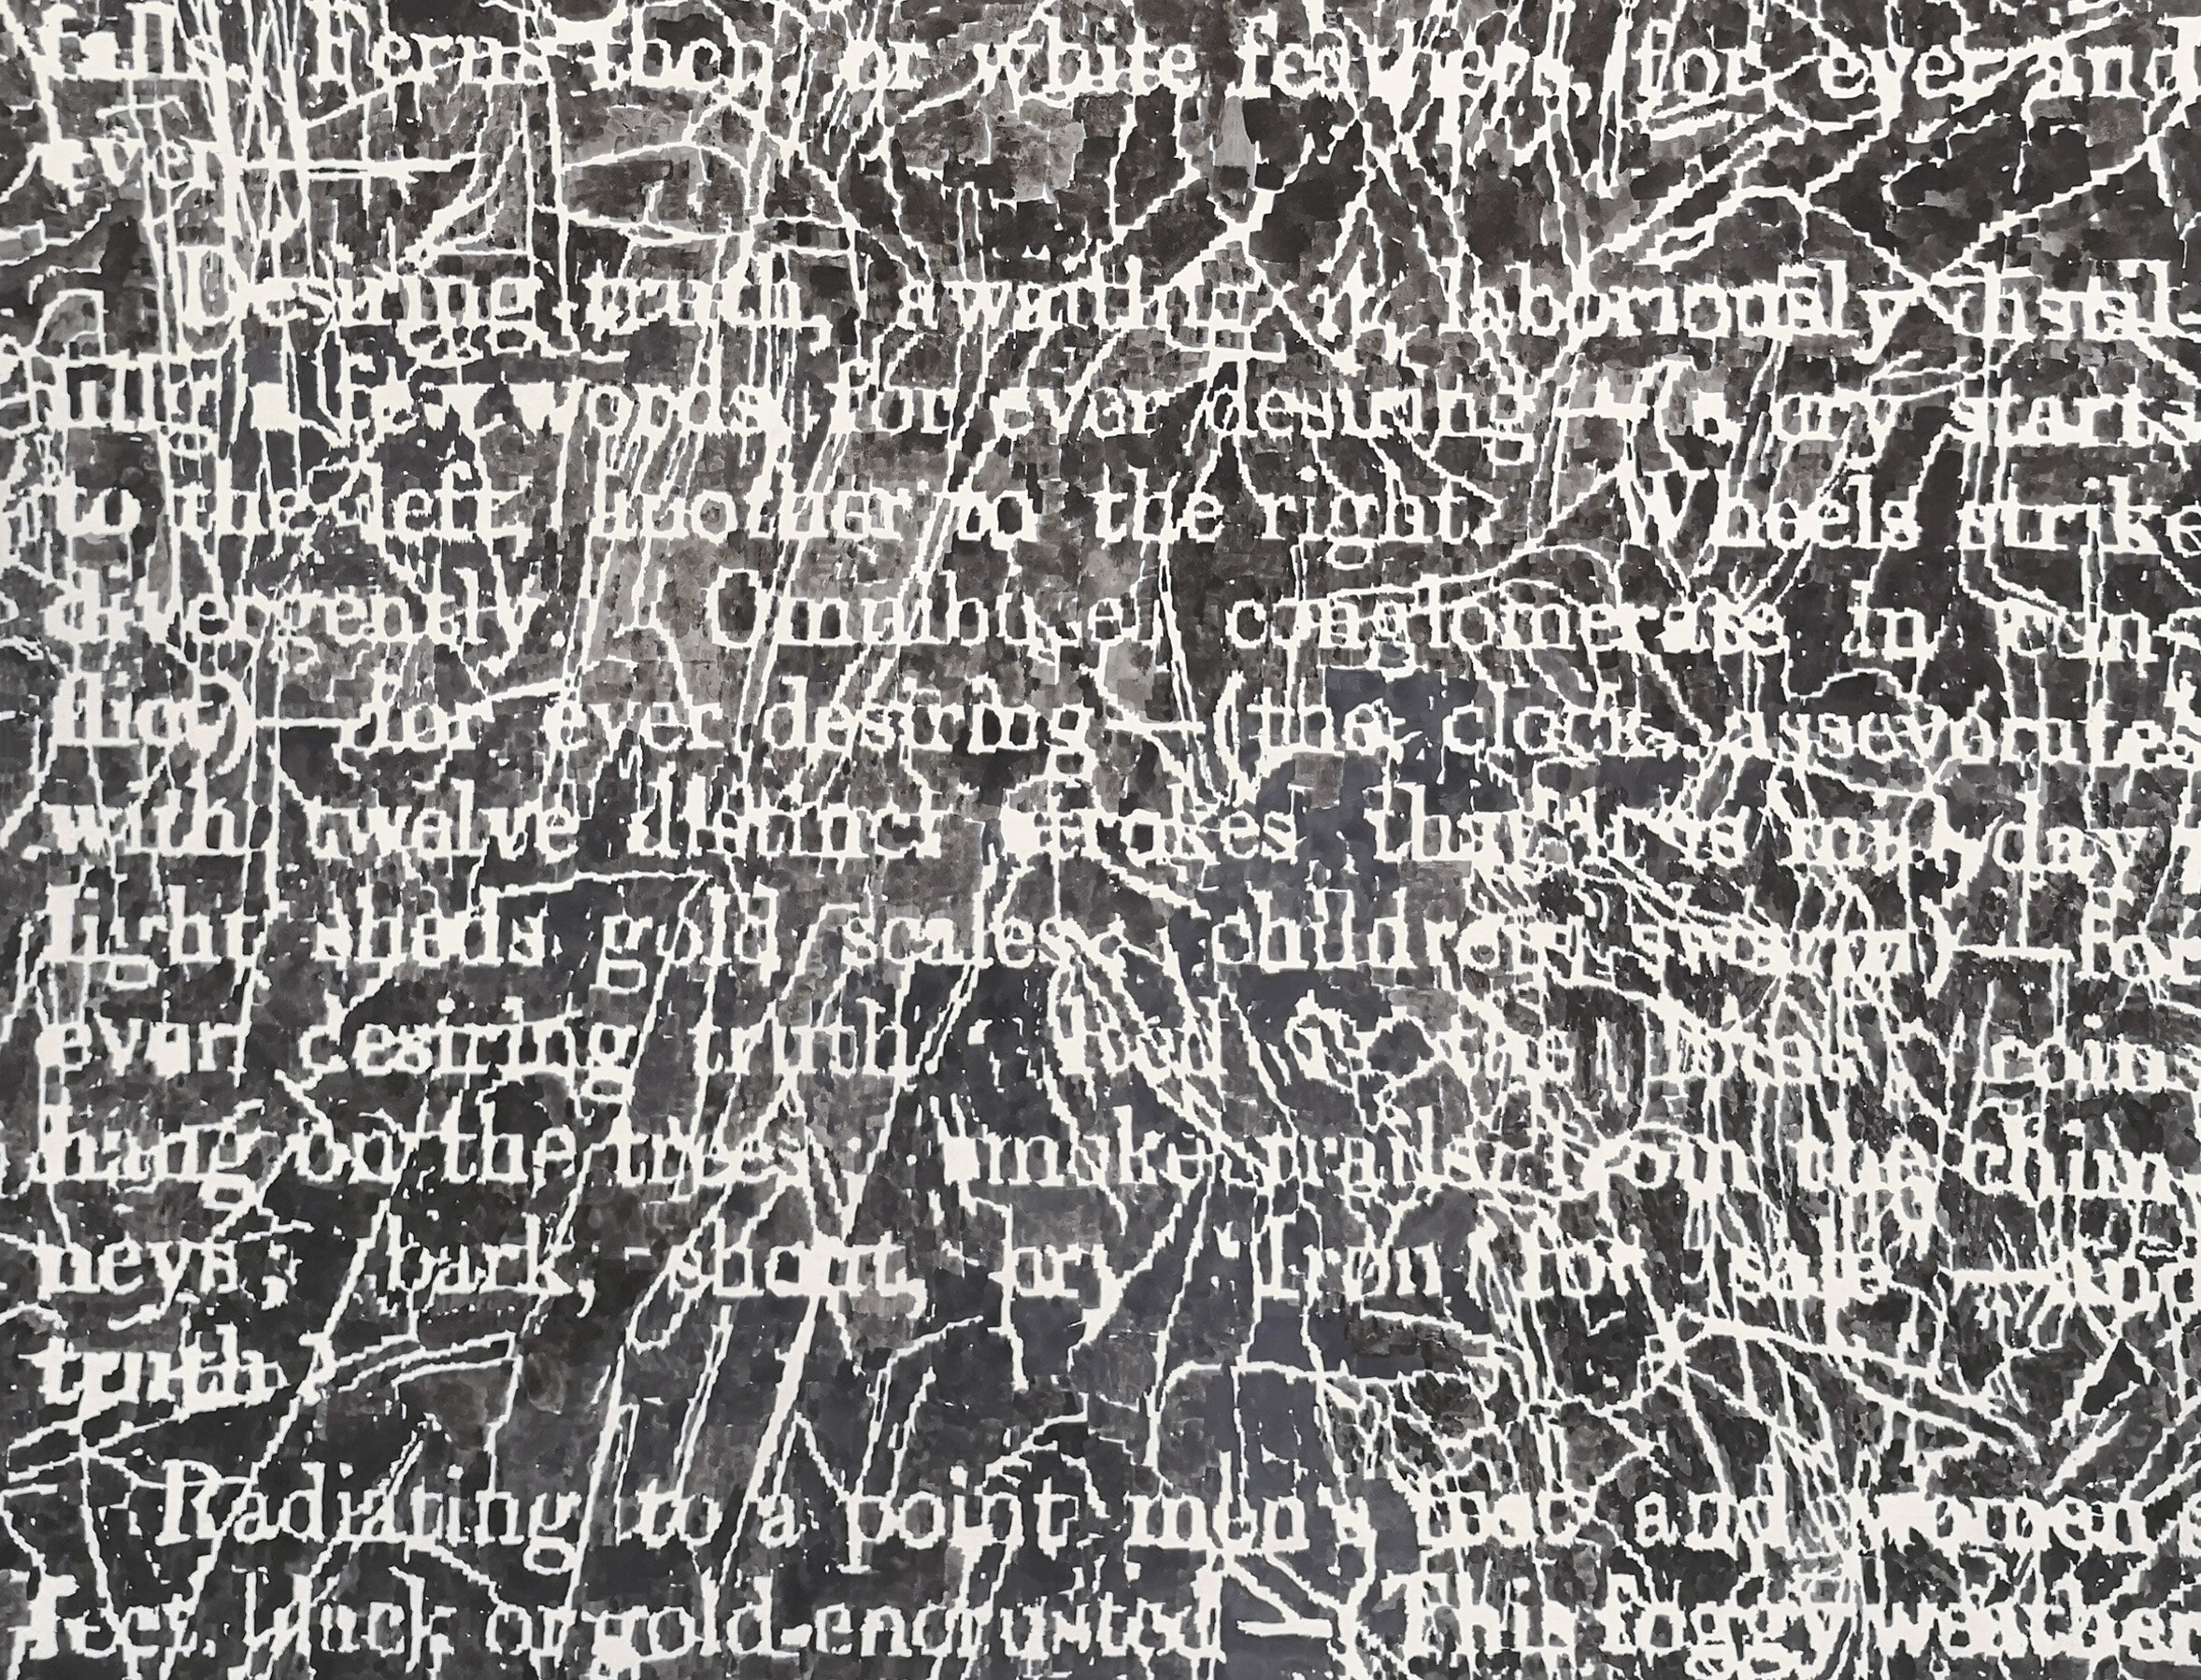 Ferns then, or white feathers, for ever and
ever—
Desiring truth, awaiting it, laboriously distil-
ling a few words, for ever desiring—(a cry starts
to the left, another to the right. Wheels strike
divergently. Omnibuses conglomerate in con-
flict)—for ever desiring—(the clock asseverates
with twelve distinct strokes that it is mid-day;
light sheds gold scales; children swarm)—for
ever desiring truth. Red is the coins
hang on the trees; smoke trails from the chim-
neys; bark, shout, cry "Iron for sale"—and
truth?
Radiating to a point men's feet and women's
feet, black or gold-encrusted—(This foggy weather